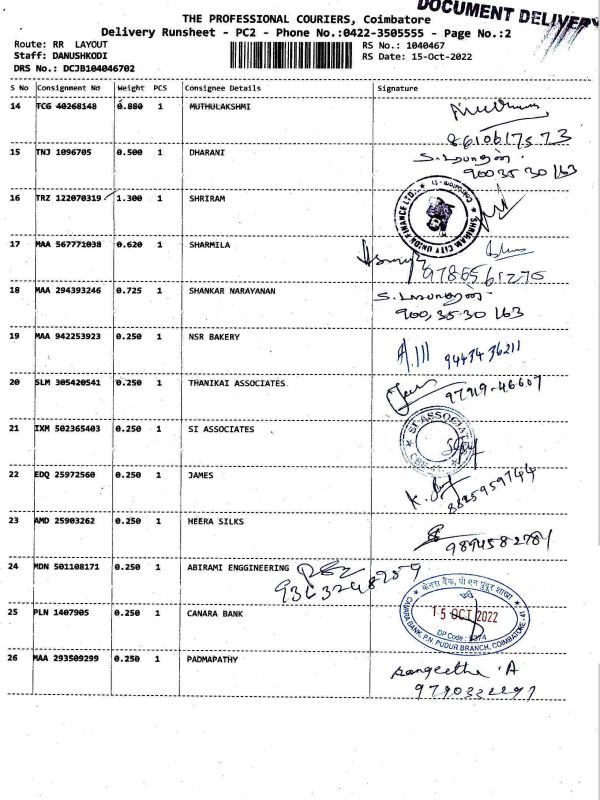 DOCUMENT DELIVERY
THE PROFESSIONAL COURIERS, Coimbatore
Delivery Runsheet - PC2 - Phone No.:0422-3505555 - Page No.:2
Route: RR LAYOUT RS No.: 1040467
Staff: DANUSHKODI RS Date: 15-Oct-2022
DRS No.: DCJB104046702
S No Consignment No Weight PCS Consignee Details Signature
14 TCG 40268148 0.880 1 MUTHULAKSHMI
8610617573
15 TNJ 1096705 0.500 1 DHARANI
9003530163
16 TRZ 122070319 1.300 1 SHRIRAM
SHRIRAM CITY UNION FINANCE LTD.
17 MAA 567771038 0.620 1 SHARMILA
9786561276
18 MAA 294393246 0.725 1 SHANKAR NARAYANAN
9003530163
19 MAA 942253923 0.250 1 NSR BAKERY
9443436211
20 SLM 305420541 0.250 1 THANIKAI ASSOCIATES
97919-46607
21 IXM 502365403 0.250 1 SI ASSOCIATES
SI ASSOCIATES
22 EDQ 25972560 0.250 1 JAMES
8895959744
23 AMD 25903262 0.250 1 HEERA SILKS
9894582781
24 MDN 501108171 0.250 1 ABIRAMI ENGGINEERING
9363248289
25 PLN 1407905 0.250 1 CANARA BANK
15 OCT 2022
DP Code :
CANARA BANK, P.N. PUDUR BRANCH, COIMBATORE - 41
26 MAA 293509299 0.250 1 PADMAPATHY
Sangeetha .A
9790322297